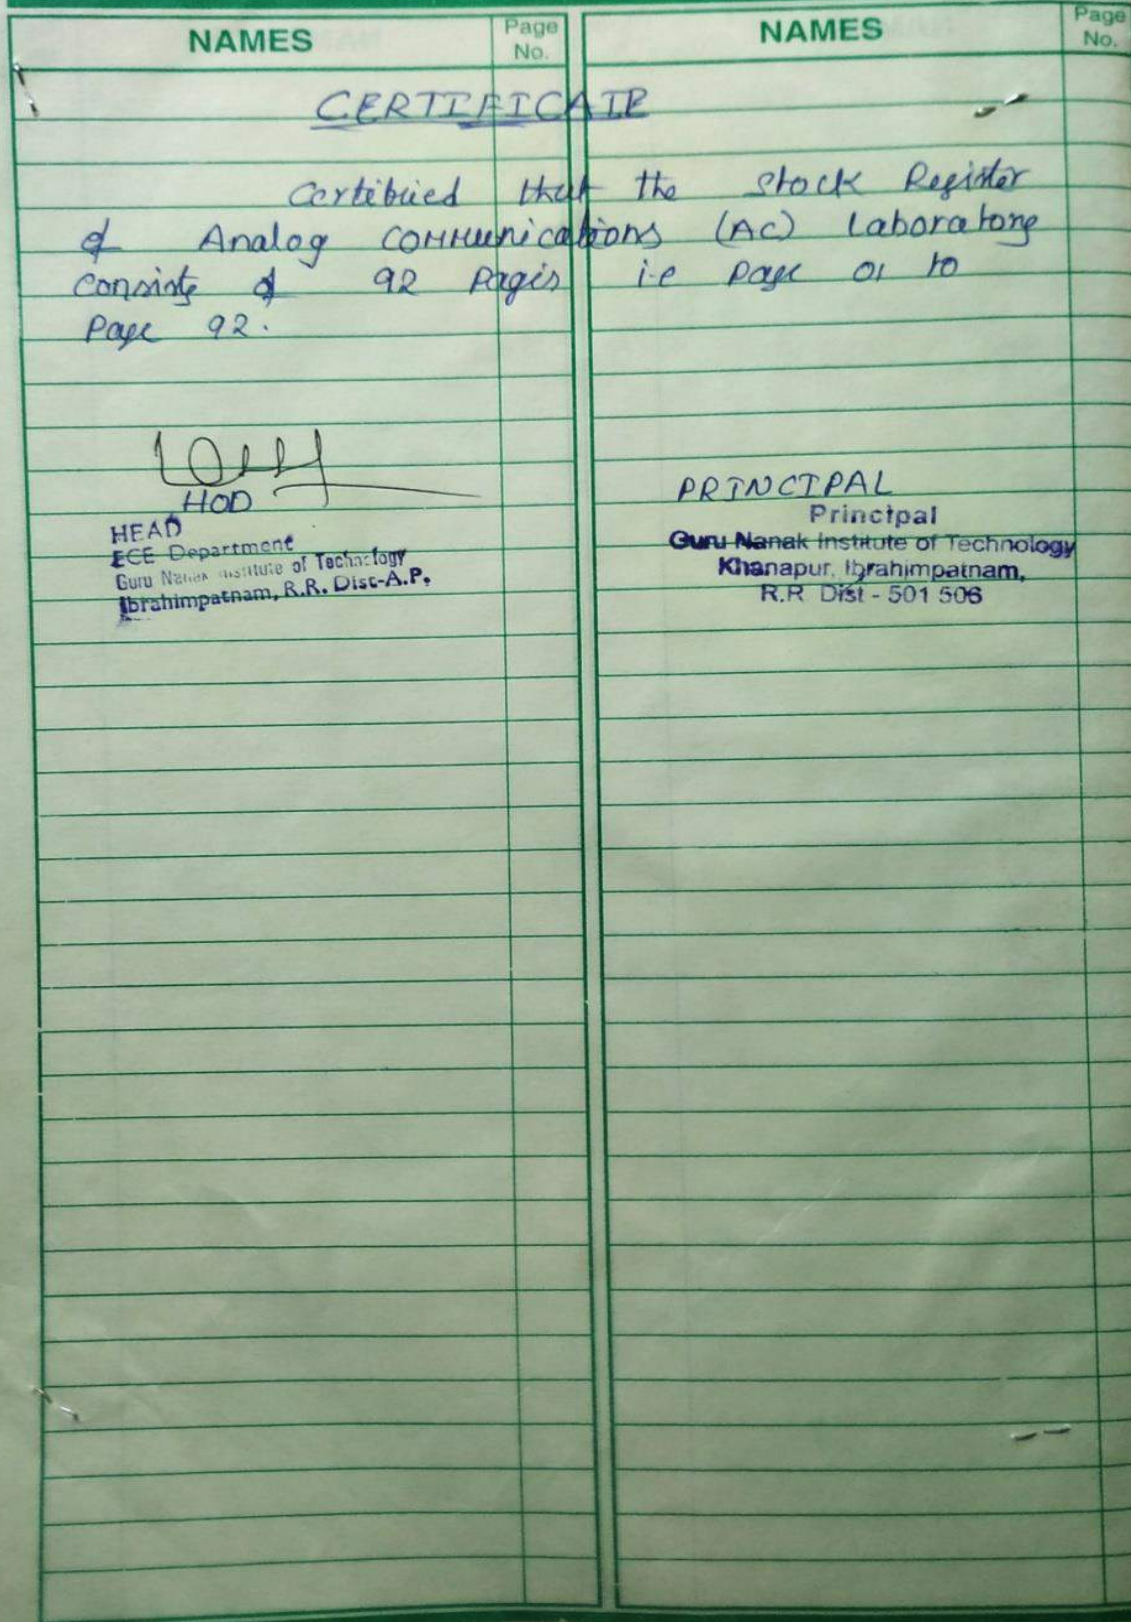 NAMES Page No. NAMES Page No.
CERTIFICATE
Certified that the Stock Register
of Analog Communications (AC) Laboratory
consists of 92 Pages i.e Page 01 to
Page 92.
HOD
HEAD
ECE Department
Guru Nanak Institute of Technology
Ibrahimpatnam, R.R. Dist-A.P.
PRINCIPAL
Principal
Guru Nanak Institute of Technology
Khanapur, Ibrahimpatnam,
R.R Dist - 501 506